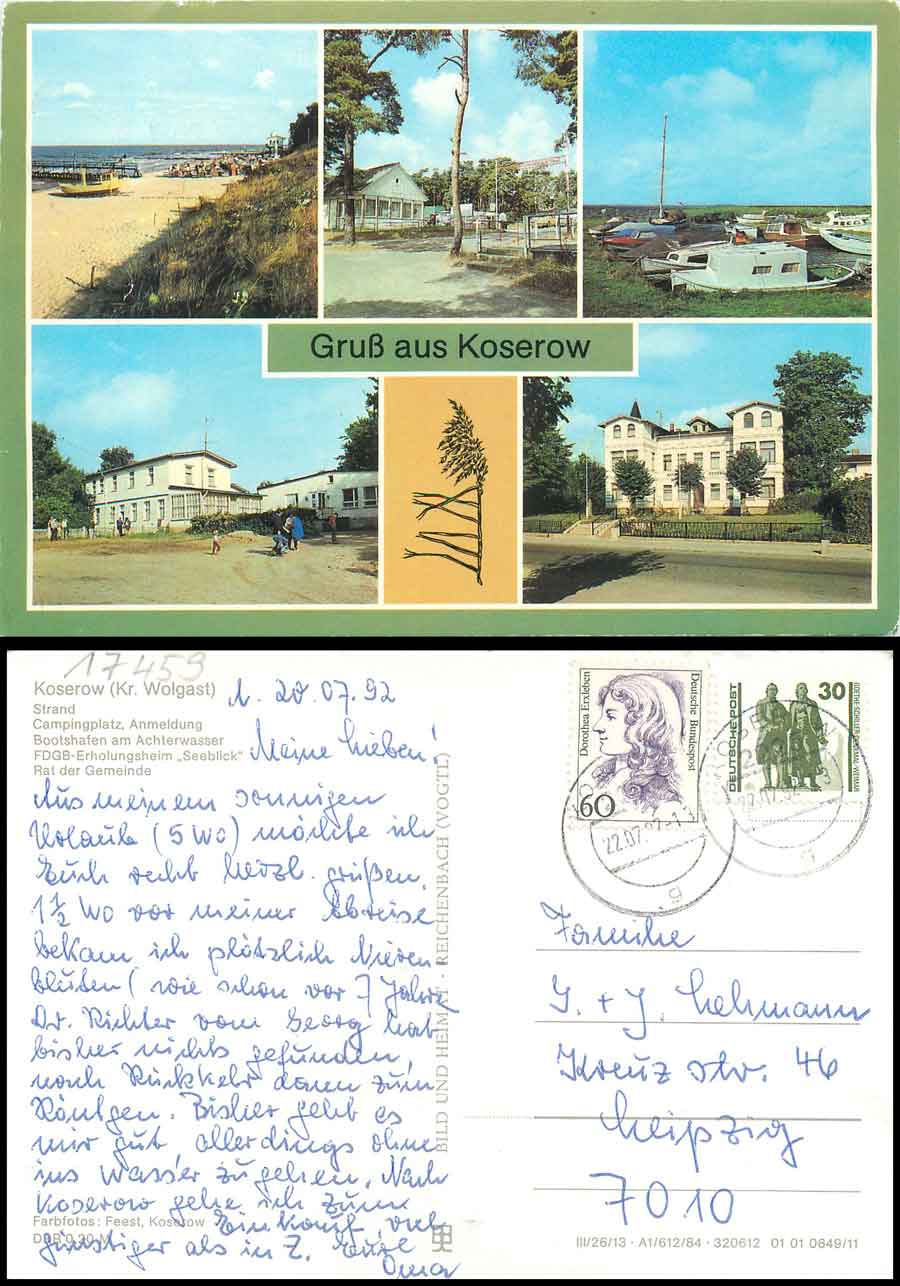 Gruß aus Koserow
17459
Koserow (Kr. Wolgast)
Strand
Campingplatz, Anmeldung
Bootshafen am Achterwasser
FDGB-Erholungsheim „Seeblick"
Rat der Gemeinde
20.07.92
Meine Lieben!
Aus meinem sonnigen
Urlaub (5 Wo) möchte ich
Euch recht herzl. grüßen.
1 1/2 Wo vor meiner Abreise
bekam ich plötzlich Nieren-
bluten (wie schon vor 7 Jahre
Dr. Richter vom Georg hat
bisher nichts gefunden,
nach Rückkehr dann zum
Röntgen. Bisher geht es
mir gut, allerdings ohne
ins Wasser zu gehen. Nach
Koserow gehe ich zum
Einkauf, viel
günstiger als in Z. Eure
Oma
Farbfotos: Feest, Koserow
DDR 0,20 M
BILD UND HEIMAT · REICHENBACH (VOGTL)
Dorothea Erxleben
Deutsche Bundespost
60
DEUTSCHE POST
30
GOETHE-SCHILLER-DENKMAL-WEIMAR
22.07.92
22.07.92
g
g
Familie
J. + J. Lehmann
Kreuzstr. 46
Leipzig
7010
III/26/13 · A1/612/84 · 320612 01 01 0849/11